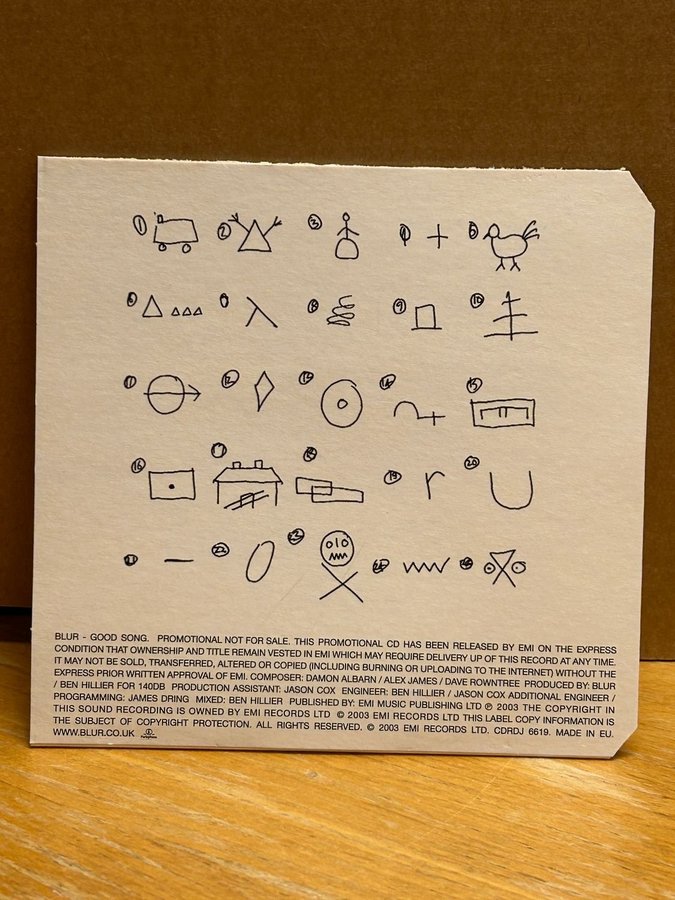 1 2 3 4 5
6 7 8 9 10
11 12 13 14 15
16 17 18 19 r 20
21 22 23 24 25
BLUR - GOOD SONG. PROMOTIONAL NOT FOR SALE. THIS PROMOTIONAL CD HAS BEEN RELEASED BY EMI ON THE EXPRESS
CONDITION THAT OWNERSHIP AND TITLE REMAIN VESTED IN EMI WHICH MAY REQUIRE DELIVERY UP OF THIS RECORD AT ANY TIME.
IT MAY NOT BE SOLD, TRANSFERRED, ALTERED OR COPIED (INCLUDING BURNING OR UPLOADING TO THE INTERNET) WITHOUT THE
EXPRESS PRIOR WRITTEN APPROVAL OF EMI. COMPOSER: DAMON ALBARN / ALEX JAMES / DAVE ROWNTREE PRODUCED BY: BLUR
/ BEN HILLIER FOR 140DB PRODUCTION ASSISTANT: JASON COX ENGINEER: BEN HILLIER / JASON COX ADDITIONAL ENGINEER /
PROGRAMMING: JAMES DRING MIXED: BEN HILLIER PUBLISHED BY: EMI MUSIC PUBLISHING LTD ℗ 2003 THE COPYRIGHT IN
THIS SOUND RECORDING IS OWNED BY EMI RECORDS LTD © 2003 EMI RECORDS LTD THIS LABEL COPY INFORMATION IS
THE SUBJECT OF COPYRIGHT PROTECTION. ALL RIGHTS RESERVED. © 2003 EMI RECORDS LTD. CDRDJ 6619. MADE IN EU.
WWW.BLUR.CO.UK Parlophone